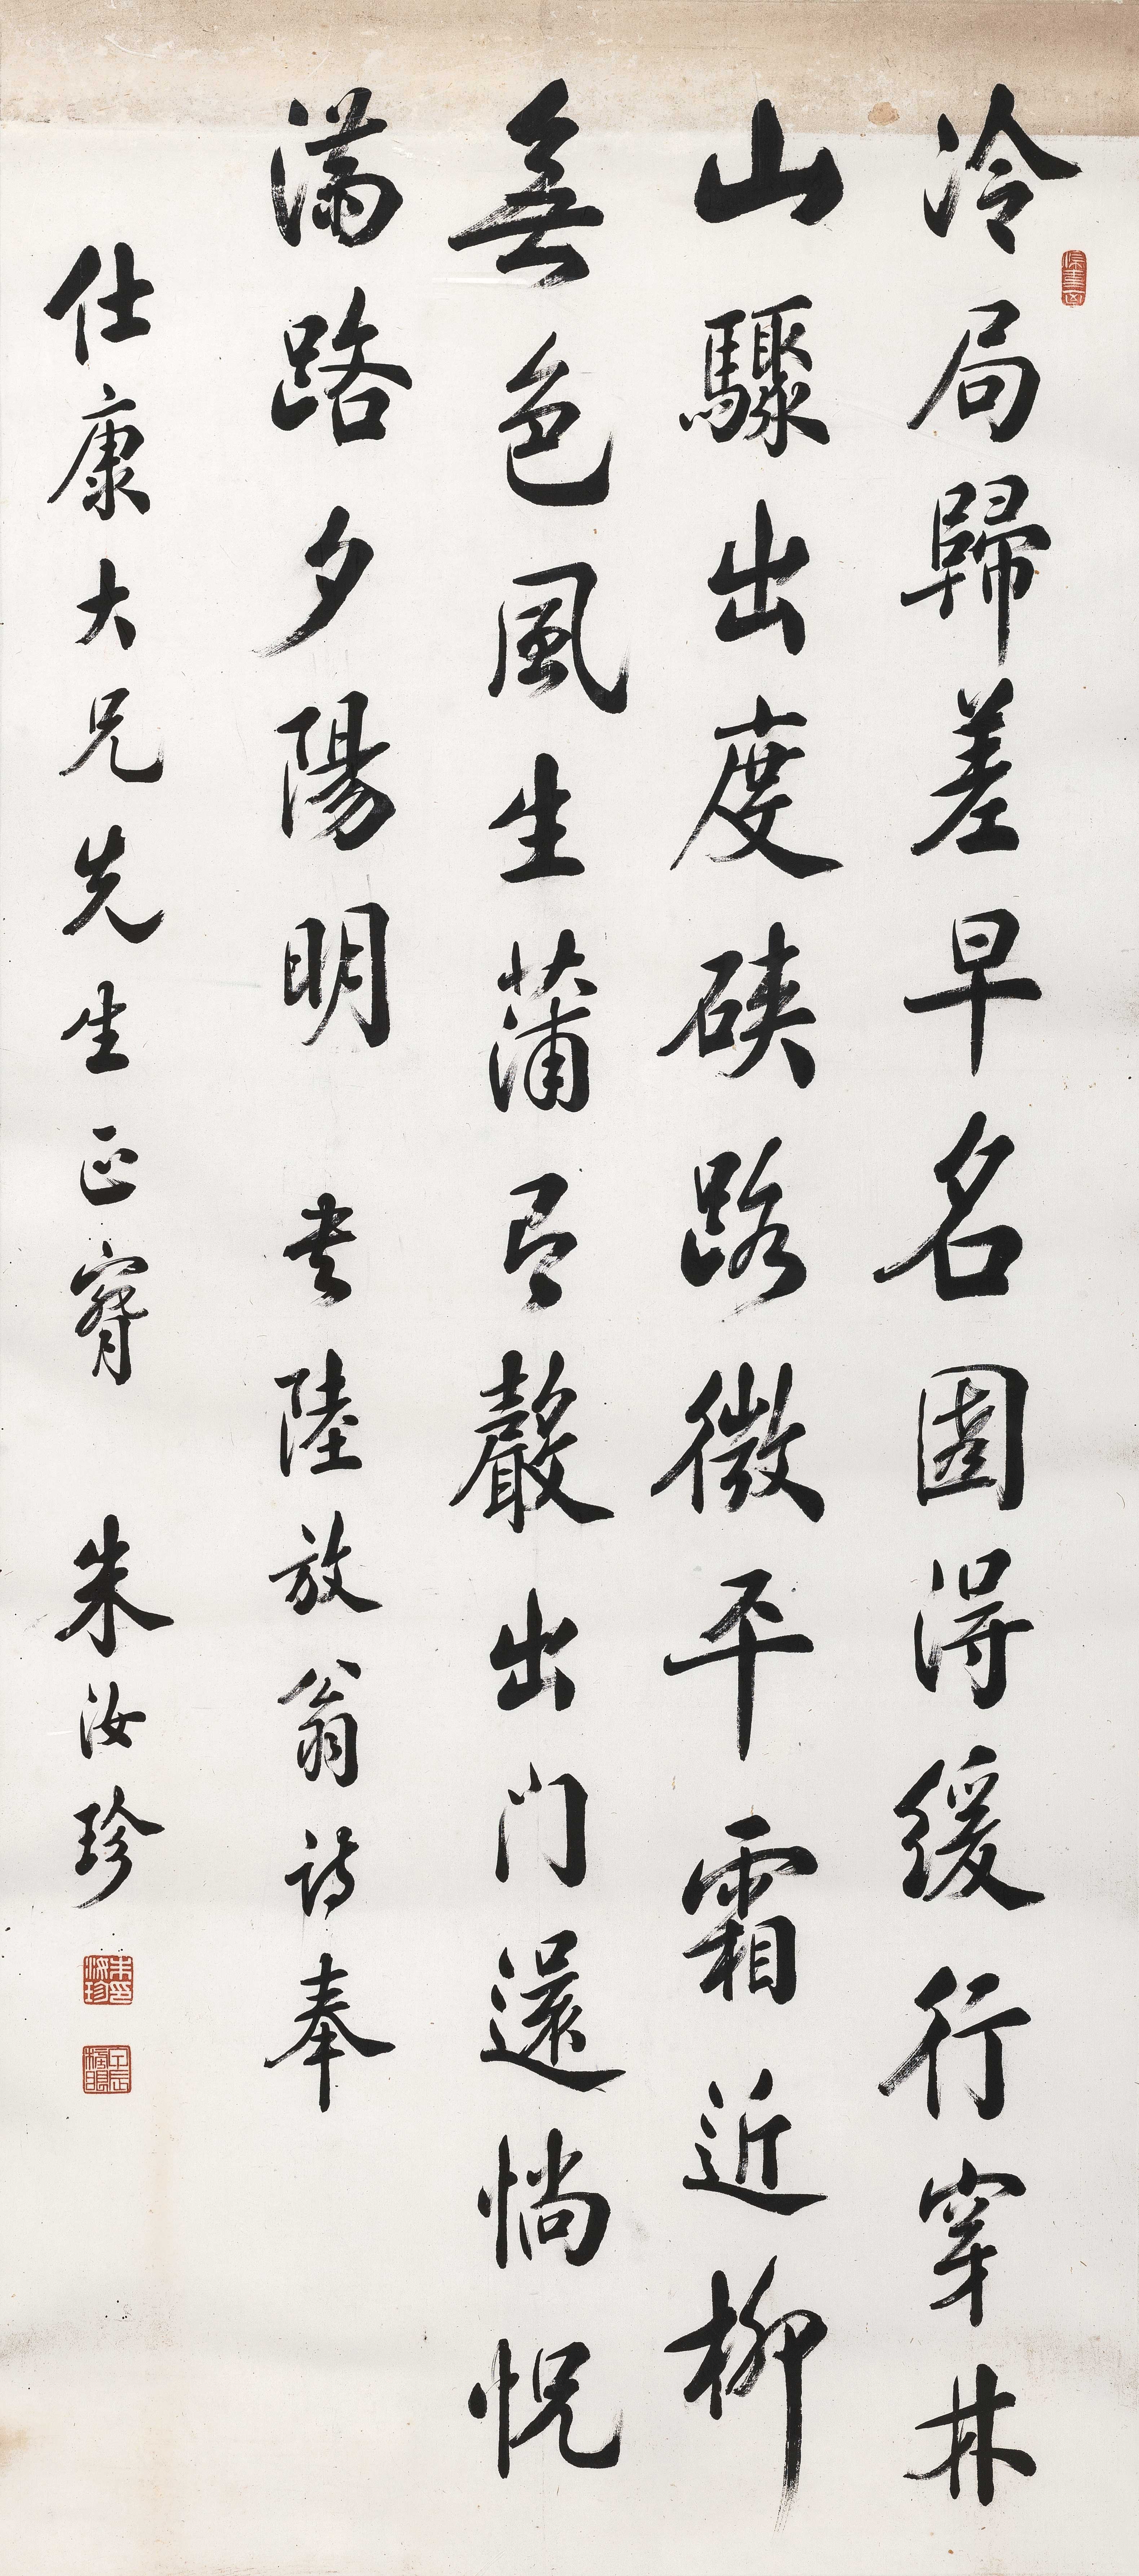 冷局歸差早名園得緩行穿林
山驟出度硤路微平霜近柳
無色風生蒲有聲出門還惝怳
滿路夕陽明 書陸放翁詩奉
仕康大兄先生正 朱汝珍
朱汝珍印
甲辰榜眼